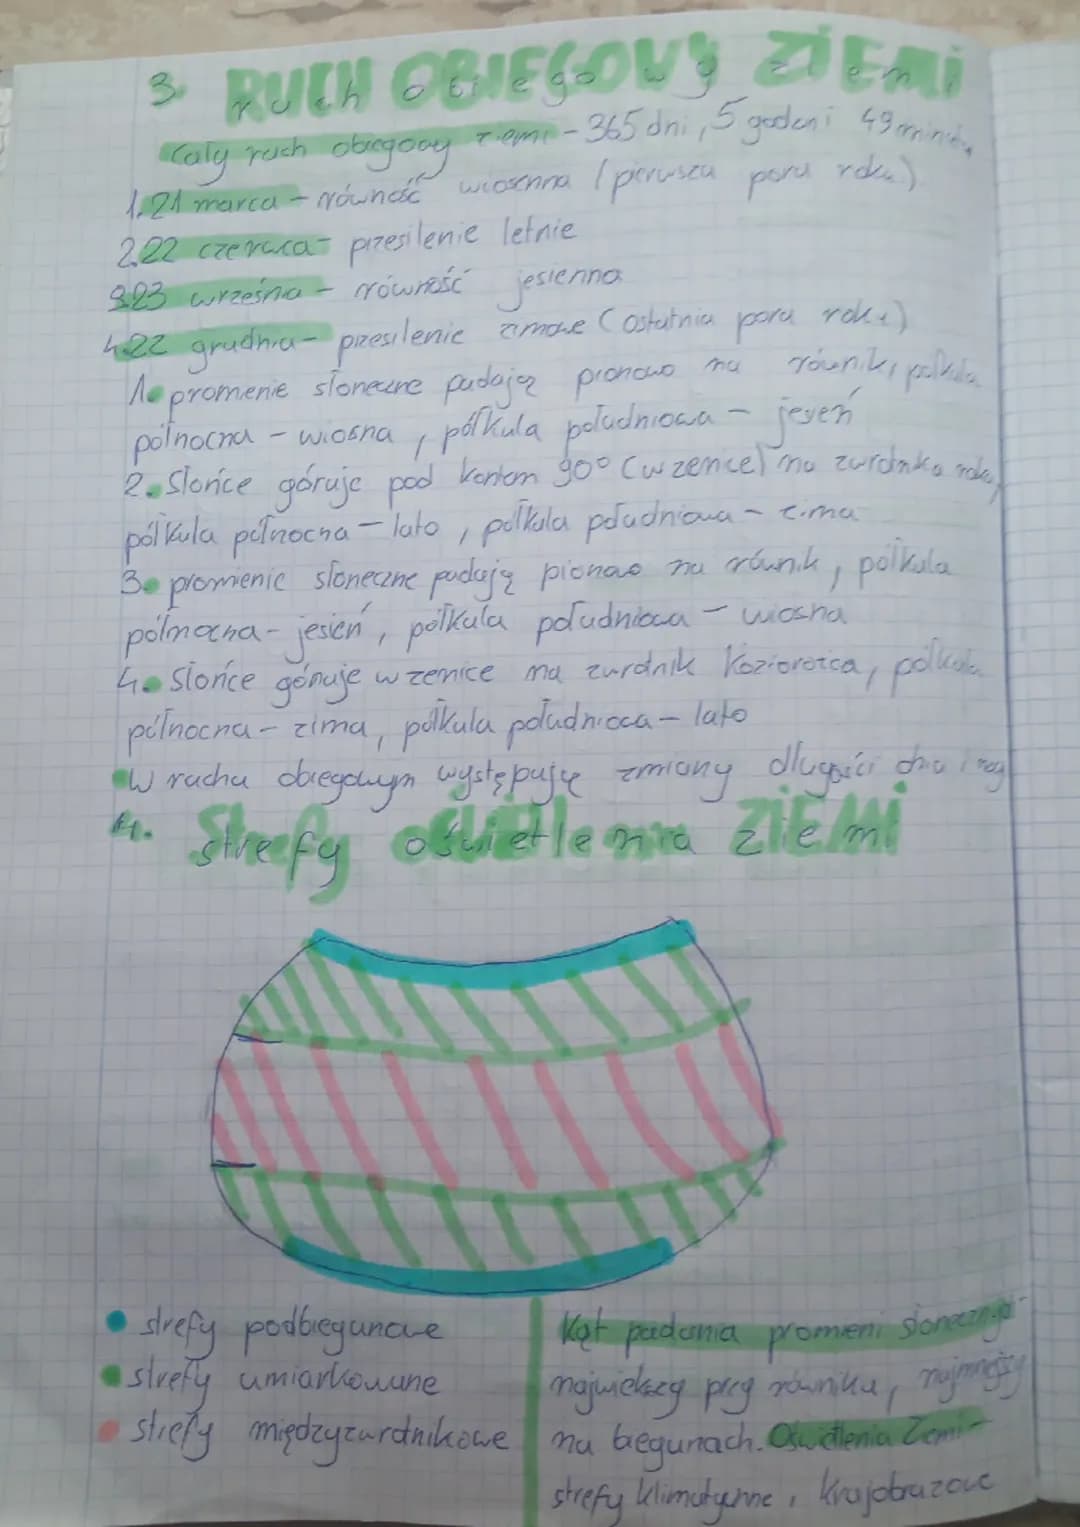 3. RUCH OBIEGOWY ZIEMI
Cały ruch obiegowy ziemi - 365 dni, 5 godzni 49 minut
1. 21 marca - równość wiosenna (pierwsza pora roku)
2. 22 czerwca - przesilenie letnie
3. 23 września - równość jesienna
4. 22 grudnia - przesilenie zimowe (ostatnia pora roku)
1. promienie słoneczne padają pionowo na równik, półkula
północna - wiosna, półkula południowa - jesień
2. Słońce góruje pod kontem 90° (w zenice) na zwrotnika
półkula północna - lato, półkula południowa - zima
3. promienie słoneczne padają pionowo na równik, półkula
północna - jesień, półkula południowa - wiosna
4. Słońce góruje w zenice na zwrotnik Koziorożca, półkula
północna - zima, półkula południowa - lato
W ruchu obiegowym występuję zmiany długości dnia i nocy
4. Strefy oświetlenia ZIEMI
strefy podbiegunowe
strefy umiarkowane
strefy międzyzwrotnikowe
Kąt padania promieni słonecznych
największy przy równiku, najmniejszy
na biegunach. Oświetlenia Ziemi -
strefy klimatyczne, krajobrazowe